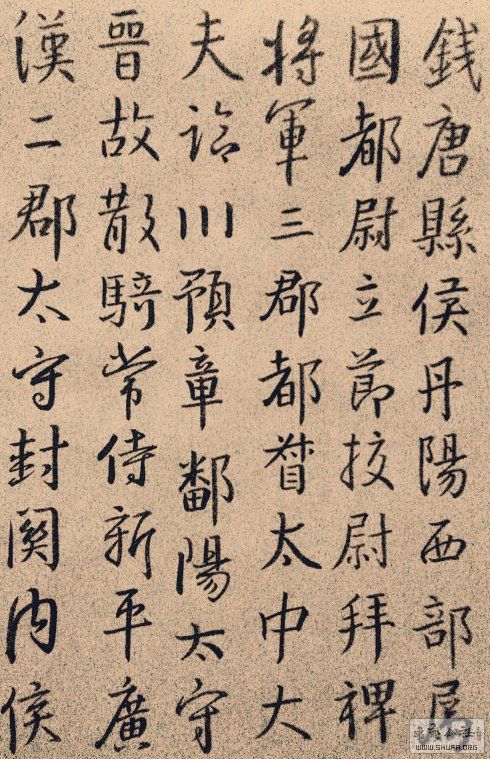 錢唐縣侯丹陽西部屬
國都尉立節挍尉拜裨
將軍三郡都督太中大
夫臨川預章鄱陽太守
晉故散騎常侍新平廣
漢二郡太守封關内侯
WWW.SHUFA.ORG